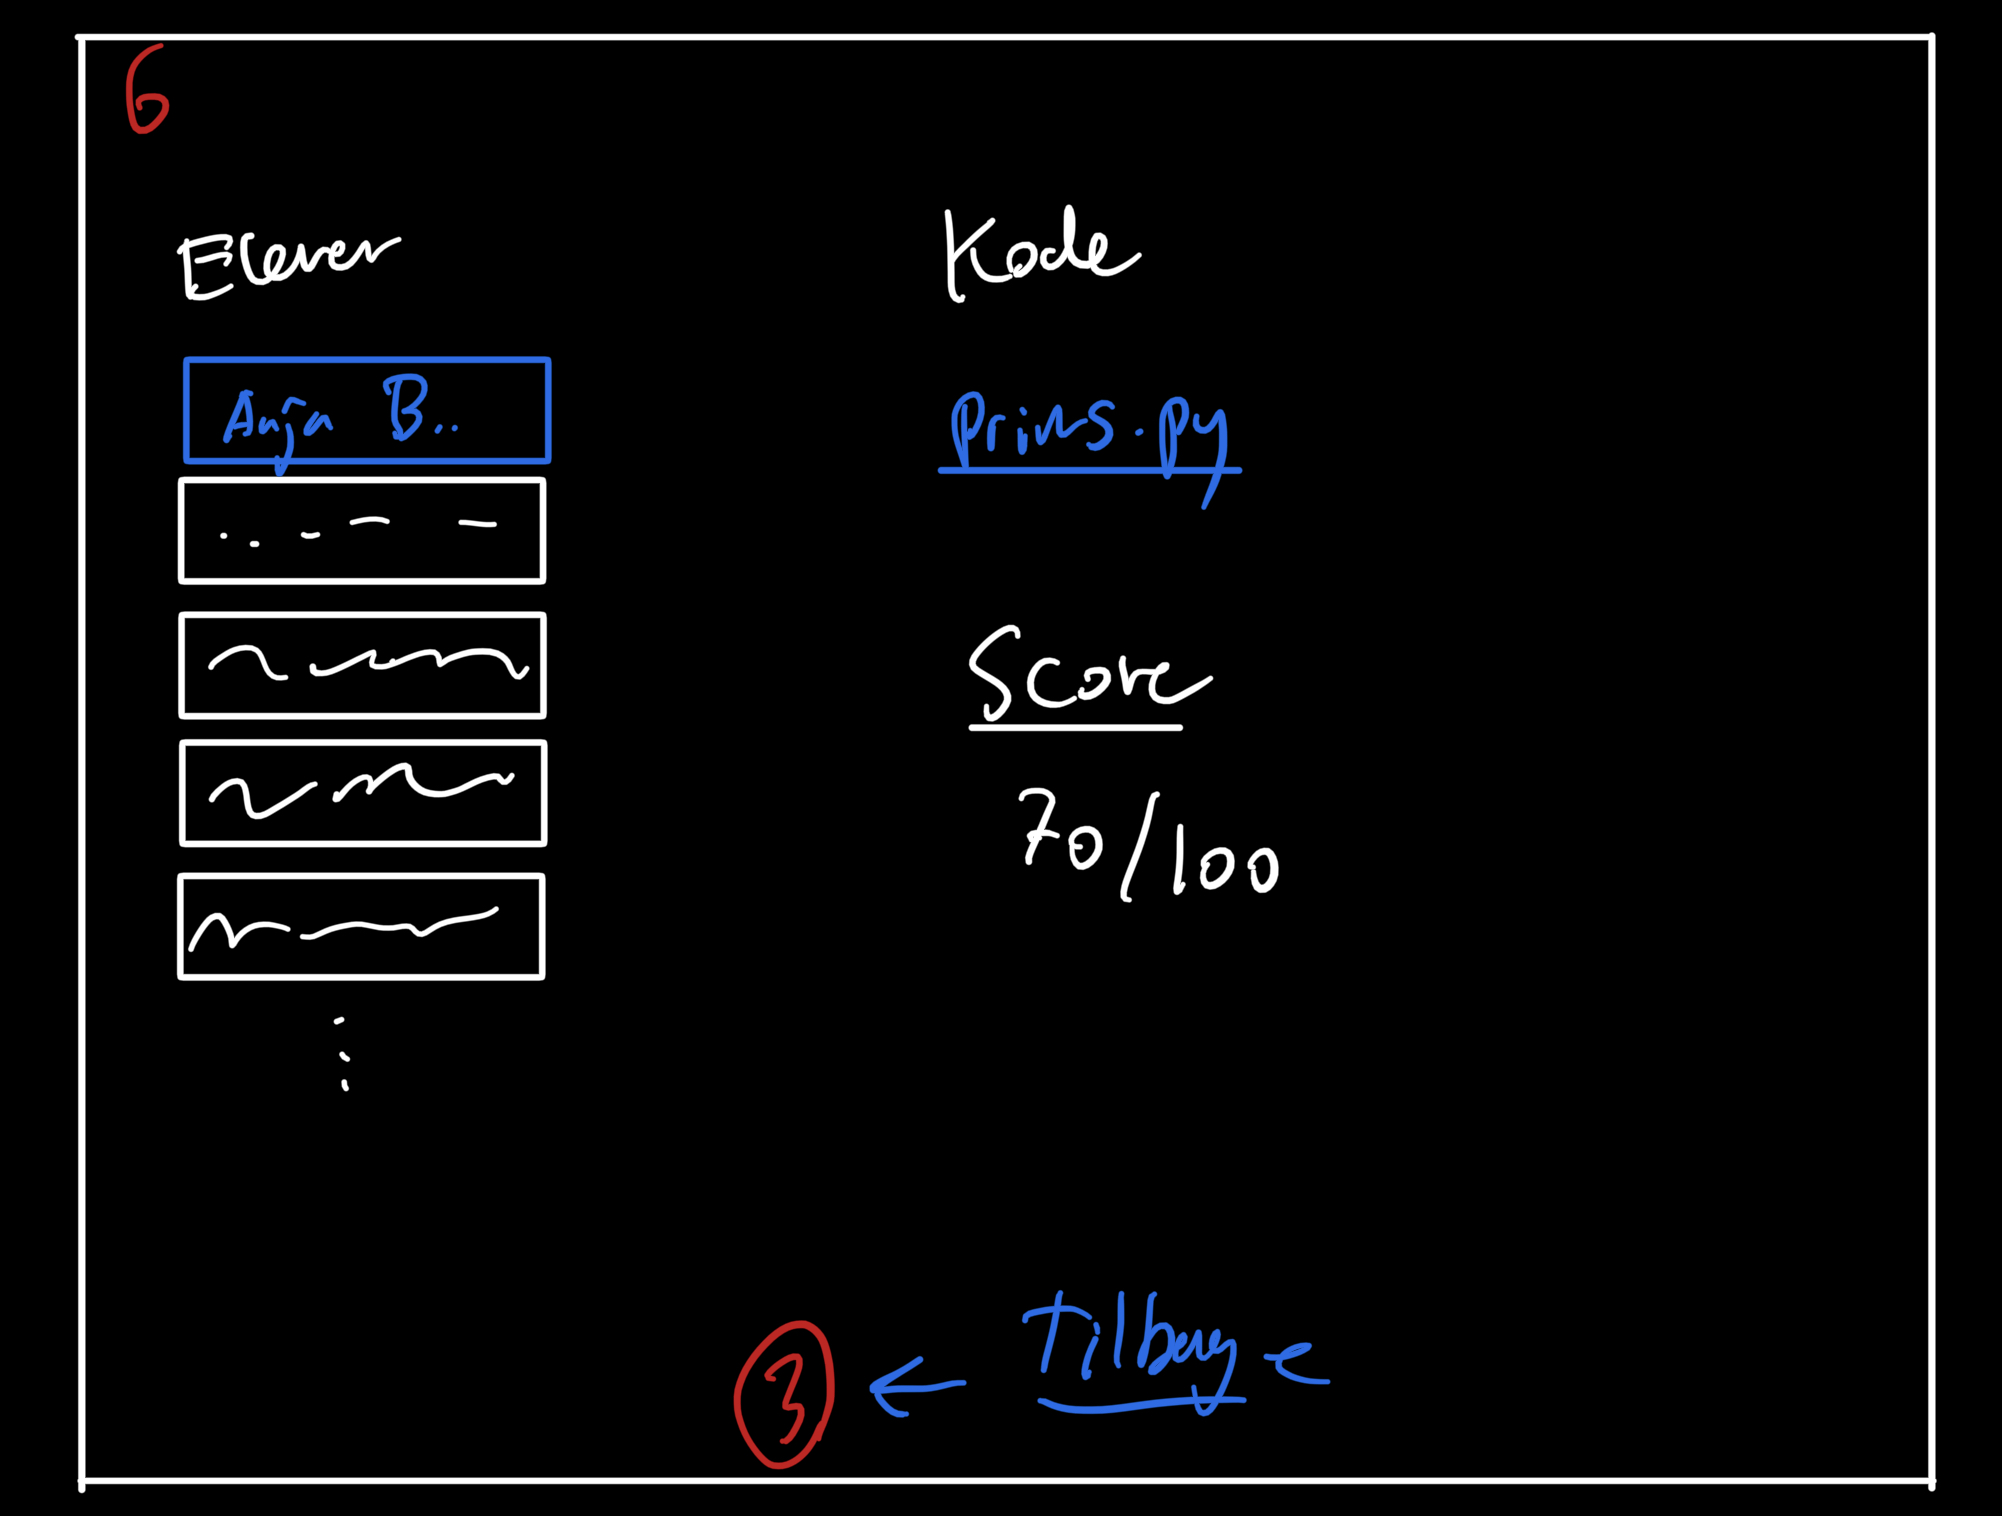 6
Elever
Anja B..
Kode
prims.py
Score
70/100
3 ← Tilbage